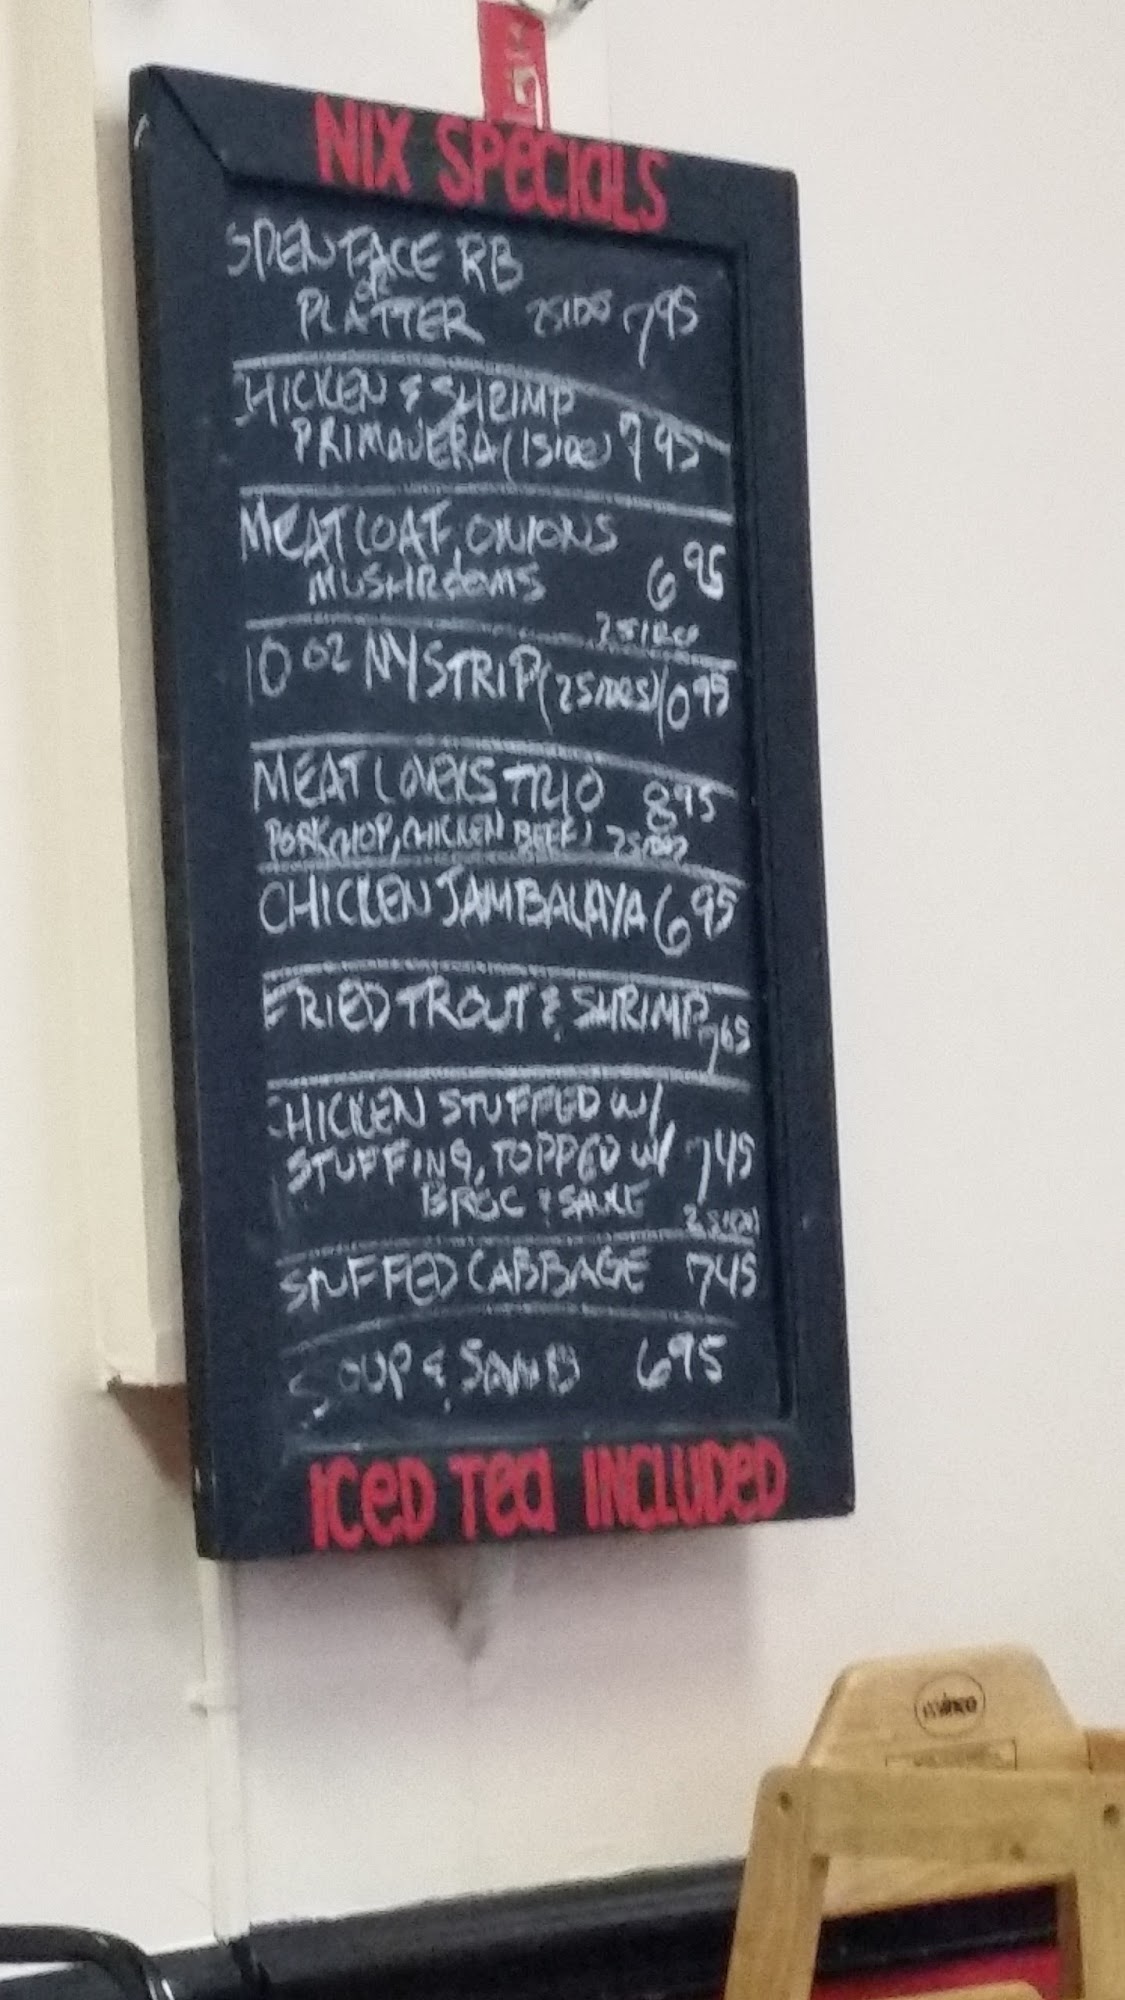 NIX SPECIALS
OPEN FACE RB
OR
PLATTER 2 SIDES 7 95
CHICKEN & SHRIMP
PRIMAVERA (1 SIDE) 7 95
MEATLOAF, ONIONS
MUSHROOMS 6 95
2 SIDES
10 OZ NY STRIP (2 SIDES) 10 95
MEAT LOVERS TRIO 8 95
PORKCHOP, CHICKEN BEEF) 2 SIDES
CHICKEN JAMBALAYA 6 95
FRIED TROUT & SHRIMP 7 65
CHICKEN STUFFED W/
STUFFING, TOPPED W/ 7 45
BROC & SAUCE 2 SIDES
STUFFED CABBAGE 7 45
SOUP & SAND 6 95
ICED TEA INCLUDED